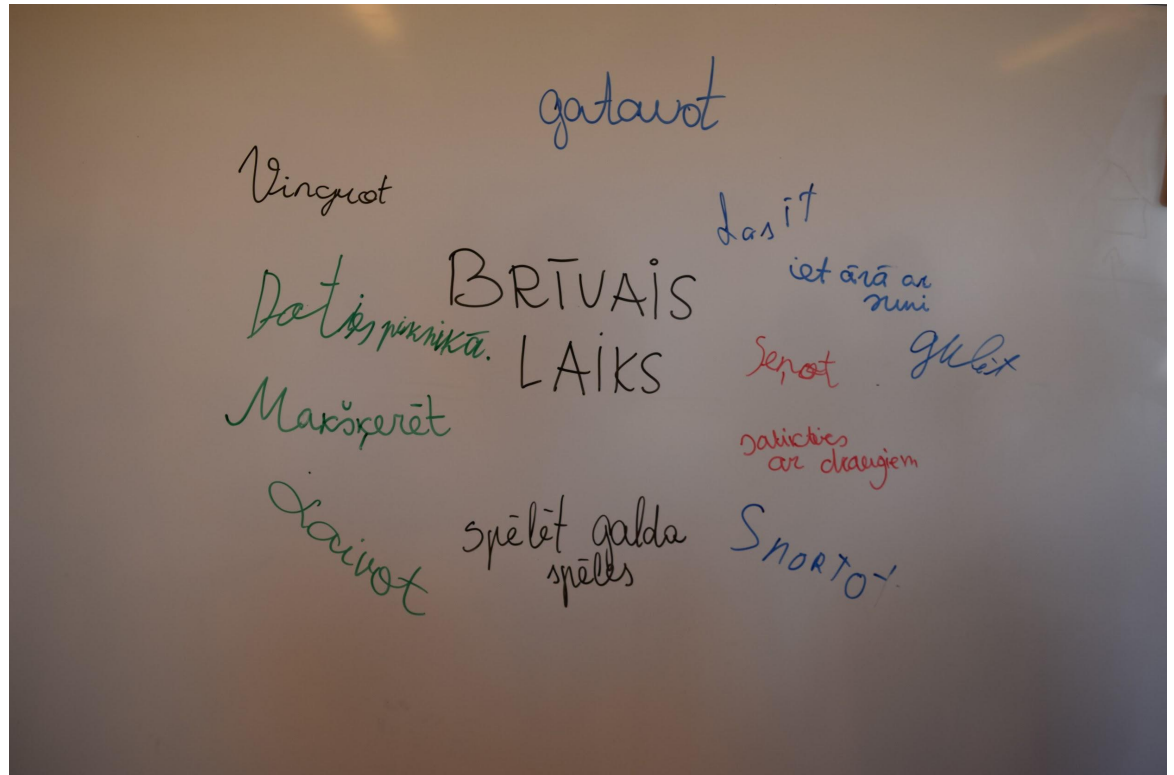 gatavot
Vingrot
Lasīt
BRĪVAIS
LAIKS
iet ārā ar
suni
Doties piknikā.
Sēņot
gulēt
Makšķerēt
satikties
ar draugiem
Laivot
spēlēt galda
spēles
Sportot